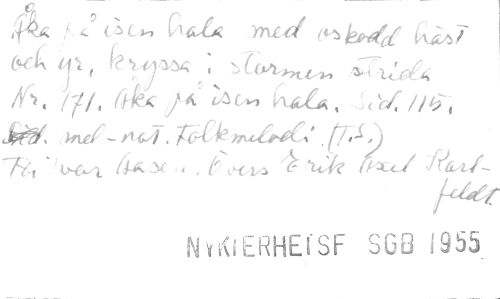 Åka på isen hala med oskodd häst
och yr, kryssa i stormen strida
Nr. 171. Åka på isen hala. Sid. 115.
Sid. mel-not. Folkmelodi. (T.S.)
Ivar Aasen. Övers Erik Axel Karl-
feldt.
NYKTERHETSF SGB 1955